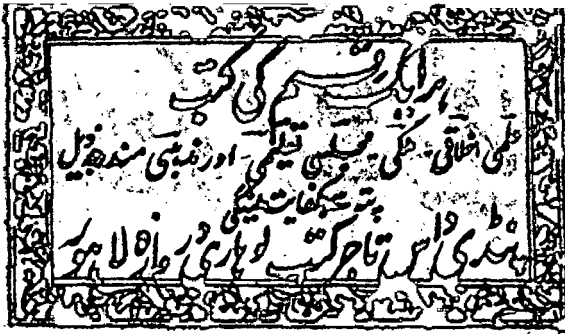 ہر ایک قسم کی کتب
علمی اخلاقی جنگی مجلسی تعلیمی اور مذہبی مندرجہ ذیل
پتہ سے کفایت ملینگی
پنڈی داس تاجر کتب لوہاری دروازہ لاہور